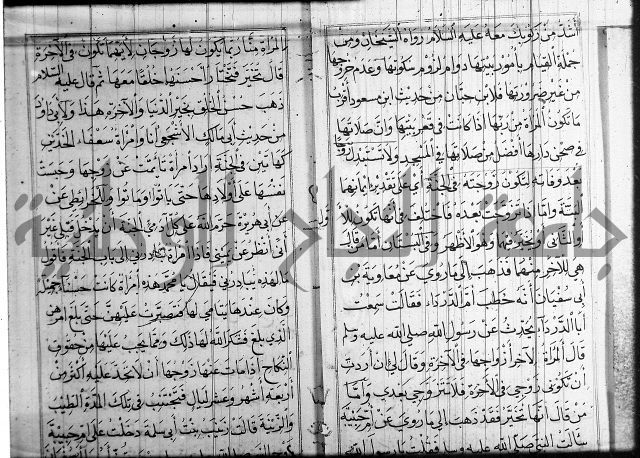 أشد من ركوبك معه عليه السلام رواه الشيخان ومن
جملة القيام بأمور بيتها دوام لزوم سكوتها وعدم خروجها
من غير ضرورتها فلابن حبان من حديث ابن مسعود أقرب
ما تكون المرأة من ربها اذا كانت في قعر بيتها وان صلاتها
في صحن دارها أفضل من صلاتها في المسجد ولا تستبدل زوجا
بعد وفاته لتكون زوجته في الجنة اي على تقدير ايمانهما
البتة واما اذا تزوجت بعده فاختلف في أنها تكون للاول
والثاني او تخير فيهما وهو الاظهر وفي البستان أما من قال
هي للآخر منهما فقد ذهب إلى ما روي عن معاوية بن
أبي سفيان أنه خطب ام الدرداء فقالت سمعت
أبا الدرداء يحدث عن رسول الله صلى الله عليه وسلم
قال المرأة لآخر أزواجها في الآخرة وقال لي ان أردت
أن تكوني زوجي في الآخرة فلا تتزوجي بعدي وأما
من قال انها تخير فقد ذهب الى ما روي عن ام حبيبة
سألت النبي صلى الله عليه وسلم فقالت يا رسول الله
المرأة منا ربما يكون لها زوجان لأيهما تكون في الآخرة
قال تخير فتختار أحسنها خلقا معها ثم قال عليه السلام
ذهب حسن الخلق بخير الدنيا والآخرة هذا ولأبي داود
من حديث أبي مالك الاشجعي أنا وامرأة سعفاء الخدين
كهاتين في الجنة امرأة تأيمت عن زوجها وحبست
نفسها على أولادها حتى بانوا وماتوا وللخرائطي عن
عن أبي هريرة حرم الله على كل آدمي الجنة ان يدخل قبلي غير
أني أنظر عن يميني فاذا امرأة تبادرني إلى باب الجنة فاقول
ما لهذه تبادرني فيقال يا محمد هذه امرأة كانت حسناء جميلة
وكان عندها يتامى لها فصبرت عليهن حتى بلغ أمرهن
الذي بلغ فشكر الله لها ذلك ومما يجب عليها من حقوق
النكاح اذا مات عنها زوجها أن لا تحد عليه أكثر من
أربعة أشهر وعشر ليال فتجتنب في تلك المدة الطيب
والزينة قالت زينب بنت أبي سلمة دخلت على ام حبيبة
جامعة النجاح الوطنية